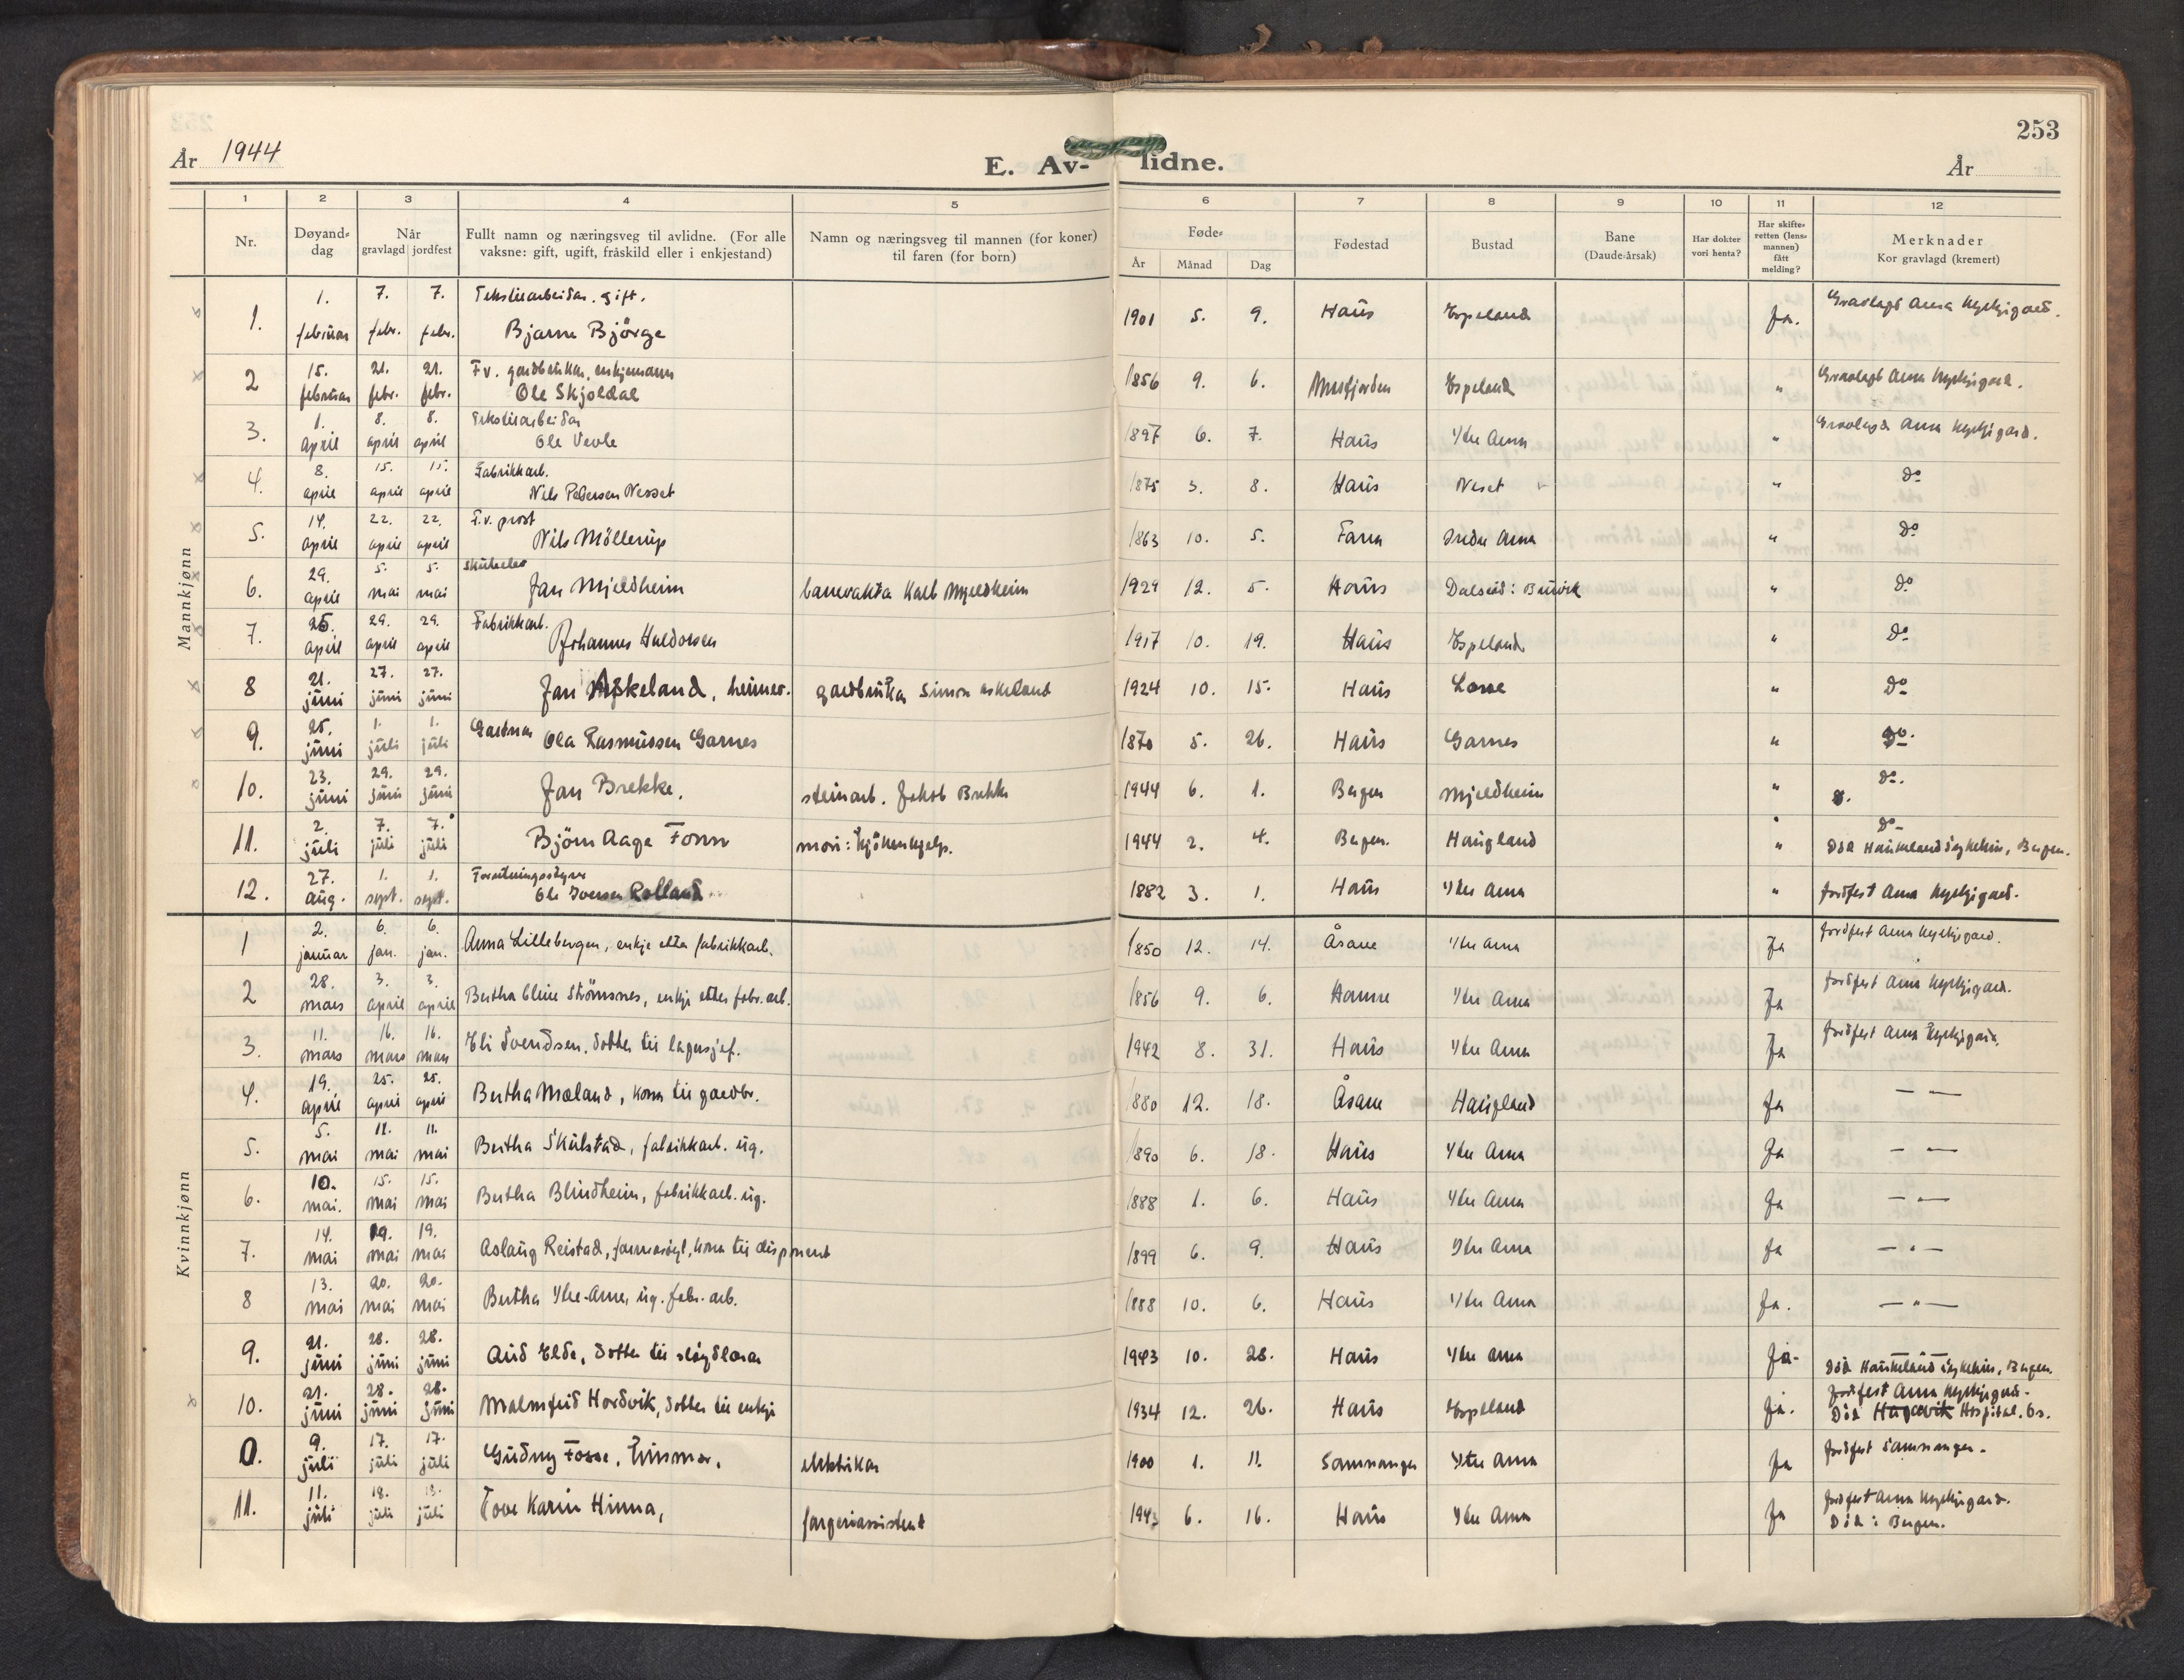 253
År 1944
E. Av-lidne.
År
1 2 3 4 5 6 7 8 9 10 11 12
Nr.
Døyand-dag
Når gravlagd jordfest
Fullt namn og næringsveg til avlidne. (For alle vaksne: gift, ugift, fråskild eller i enkjestand)
Namn og næringsveg til mannen (for koner) til faren (for born)
Føde-
År Månad Dag
Fødestad
Bustad
Bane (Daude-årsak)
Har dokter vori henta?
Har skifteretten (lensmannen) fått melding?
Merknader
Kor gravlagd (kremert)
Mannkjønn
1. 1. februar 7. febr. 7. febr. Tekstilarbeidar. gift. Bjarne Björge 1901 5. 9. Haus Espeland Ja. Gravlagt Arna kyrkjegard.
2 15. februar 21. febr. 21. febr. Fv. gardbrukar, enkjemann Ole Skjoldal 1856 9. 6. Espeland " Gravlagt Arna kyrkjegard.
3. 1. april 8. april 8. april Tekstilarbeidar Ole Vevle 1897 6. 7. Haus Ytre Arna " Gravlagd Arna kyrkjegard.
4. 8. april 15. april 15. april Fabrikkarb. Nils Pedersen Nesset 1875 3. 8. Haus Neset " Do
5. 14. april 22. april 22. april F.v. prost Nils Möllerup 1863 10. 5. Fana Indre Arna " Do
6. 29. april 5. mai 5. mai skuleelev Jan Mjeldheim banevakta Karl Mjeldheim 1929 12. 5. Haus Dalseid: Bruvik " Do
7. 25. april 29. april 29. april Fabrikkarb. Johannes Haldorsen 1917 10. 19. Haus Espeland " Do
8 21. juni 27. juni 27. juni Jan Askeland, heimev. gardbrukar Simon Askeland 1924 10. 15. Haus Lone " Do
9. 25. juni 1. juli 1. juli Gardman Ola Rasmussen Garnes 1870 5. 26. Haus Garnes " Do.
10. 23. juni 29. juni 29. juni Jan Brekke. steinarb. Jakob Brekke 1944 6. 1. Bergen Mjeldheim " do.
11. 2. juli 7. juli 7. juli Björn Aage Fonn mori: kjökenhjelp. 1944 2. 4. Bergen. Haugland " Do Död Haukeland sjukehus, Bergen.
12. 27. aug. 1. sept. 1. sept. Forretningsstyrar Ole Iversen Rolland 1882 3. 1. Haus Ytre Arna " Jordfest Arna kyrkjegard.
Kvinnkjønn
1 2. januar 6. jan. 6. jan. Anna Lillebergen, enkje etter fabrikkarb. 1850 12. 14. Åsane Ytre Arna Ja Jordfest Arna kyrkjegard.
2 28. mars 3. april 3. april Bertha Oline Strömsnes, enkje etter fabr.arb. 1856 9. 6. Hamre Ytre Arna Ja Jordfest Arna kyrkjegard.
3. 11. mars 16. mars 16. mars Eli Svendsen, dotter til lagersjef. 1942 8. 31. Haus Ytre Arna Ja Jordfest Arna kyrkjegard.
4. 19. april 25. april 25. april Bertha Mæland, kona til gardbr. 1880 12. 18. Åsane Haugland Ja — —
5. 5. mai 11. mai 11. mai Bertha Skulstad, fabrikkarb. ug. 1890 6. 18. Haus Ytre Arna Ja — —
6. 10. mai. 15. mai 15. mai Bertha Blindheim, fabrikkarb. ug. 1888 1. 6. Haus Ytre Arna Ja — " —
7. 14. mai 19. mai 19. mai Aslaug Reistad, kona til disponent 1899 6. 9. Haus Ytre Arna Ja — " —
8 13. mai 20. mai 20. mai Bertha Ytre-Arne, ug. fabr. arb. 1888 10. 6. Haus Ytre Arna Ja. — " —
9. 21. juni 28. juni 28. juni Aud Elde, dotter til slöydlærar 1943 10. 28. Haus Ytre Arna Ja. — — Död Haukeland sjukehus, Bergen.
10. 21. juni 28. juni 28. juni Malmfrid Hordvik, dotter til enkje 1934 12. 26. Haus Espeland Ja. Jordfest Arna kyrkjegard. Död Hagavik Hospital. Os.
0. 9. juli 17. juli 17. juli Gudny Fosse, husmor. elektrikar 1900 1. 11. Samnanger Ytre Arna Ja Jordfest Samnanger.
11. 11. juli 18. juli 18. juli Tove Karin Hinna, fargeriassistent 1943 6. 16. Haus Ytre Arna Ja Jordfest Arna kyrkjegard. Död i Bergen.